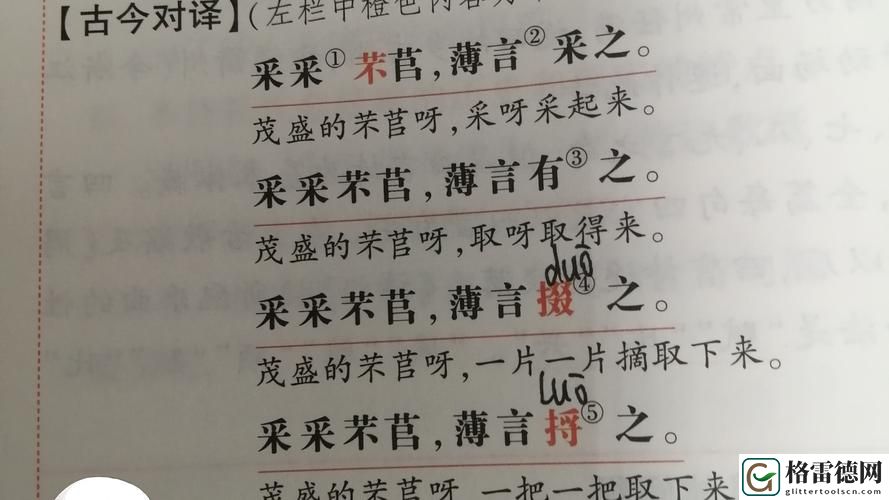 【古今对译】(左栏中橙色内容为
采采①芣苢,薄言②采之。
茂盛的芣苢呀,采呀采起来。
采采芣苢,薄言有③之。
茂盛的芣苢呀,取呀取得来。
duō
采采芣苢,薄言掇④之。
茂盛的芣苢呀,一片一片摘取下来。
luō
采采芣苢,薄言捋⑤之。
茂盛的芣苢呀,一把一把取下来
格雷德网
glittertoolscn.com